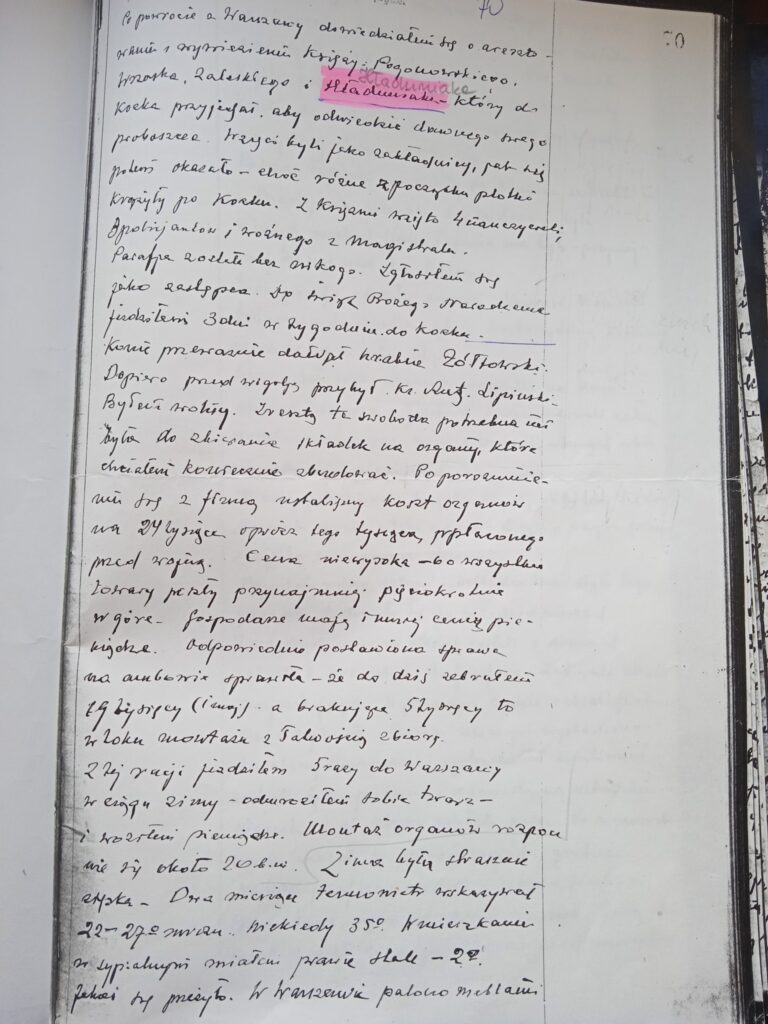 70
70
Po powrocie z Warszawy dowiedziałem się o areszto-
waniu i wywiezieniu Księży: Pogonowskiego,
Wrzoska, Zaleskiego i Hładuniaka – który do
Hładuniaka
Kocka przyjechał, aby odwiedzić dawnego swego
proboszcza. Wzięci byli jako zakładnicy, jak się
potem okazało – choć różne z początku plotki
krążyły po Kocku. Z Księżmi wzięto 4 nauczycieli,
2 policjantów i woźnego z Magistratu.
Parafja została bez nikogo. Zgłosiłem się
jako zastępca. Do świąt Bożego Narodzenia
jeździłem 3 dni w tygodniu do Kocka.
Konie przeważnie dawał hrabia Żółtowski.
Dopiero przed wigilją przybył ks. Lipiński.
Byłem wolny. Zresztą ta swoboda potrzebna mi
była do zbierania składek na organy, które
chciałem koniecznie zbudować. Po porozumie-
niu się z firmą ustaliliśmy koszt organów
na 24 tysiące oprócz tego tysiąca, wpłaconego
przed wojną. Cena niewysoka – bo wszystkie
towary poszły przynajmniej pięciokrotnie
w górę. Gospodarze mają i mniej cenią pie-
niądze. Odpowiednio postawiona sprawa
na ambonie sprawiła – że do dziś zebrałem
19 tysięcy (1 maj). a brakujące 5 tysięcy to
w toku montażu z łatwością zbiorę.
Z tej racji jeździłem 5 razy do Warszawy
w ciągu zimy – odmroziłem sobie twarz –
i woziłem pieniądze. Montaż organów rozpocz
nie się około 20 b.m. Zima była strasznie
ciężka – Dwa miesiące termometr wskazywał
22–27º mrozu. Niekiedy 35º. W mieszkaniu
w sypialnym miałem prawie stale – 2º.
Jakoś się przeżyło. W Warszawie palono meblami